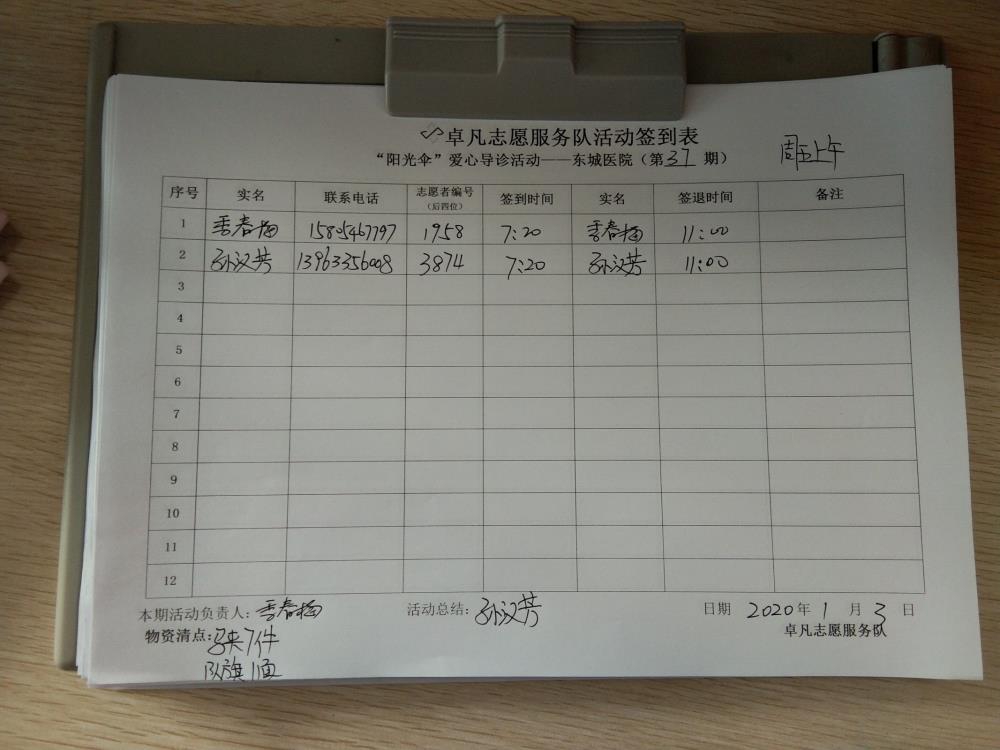 卓凡志愿服务队活动签到表
“阳光伞”爱心导诊活动——东城医院（第37期） 周五上午
序号 实名 联系电话 志愿者编号（后四位） 签到时间 实名 签退时间 备注
1 季春梅 15805467797 1958 7:20 季春梅 11:00
2 孙汉芳 13963356008 3874 7:20 孙汉芳 11:00
3
4
5
6
7
8
9
10
11
12
本期活动负责人：季春梅 活动总结：孙汉芳 日期 2020年1月3日
物资清点：马夹7件 卓凡志愿服务队
队旗1面